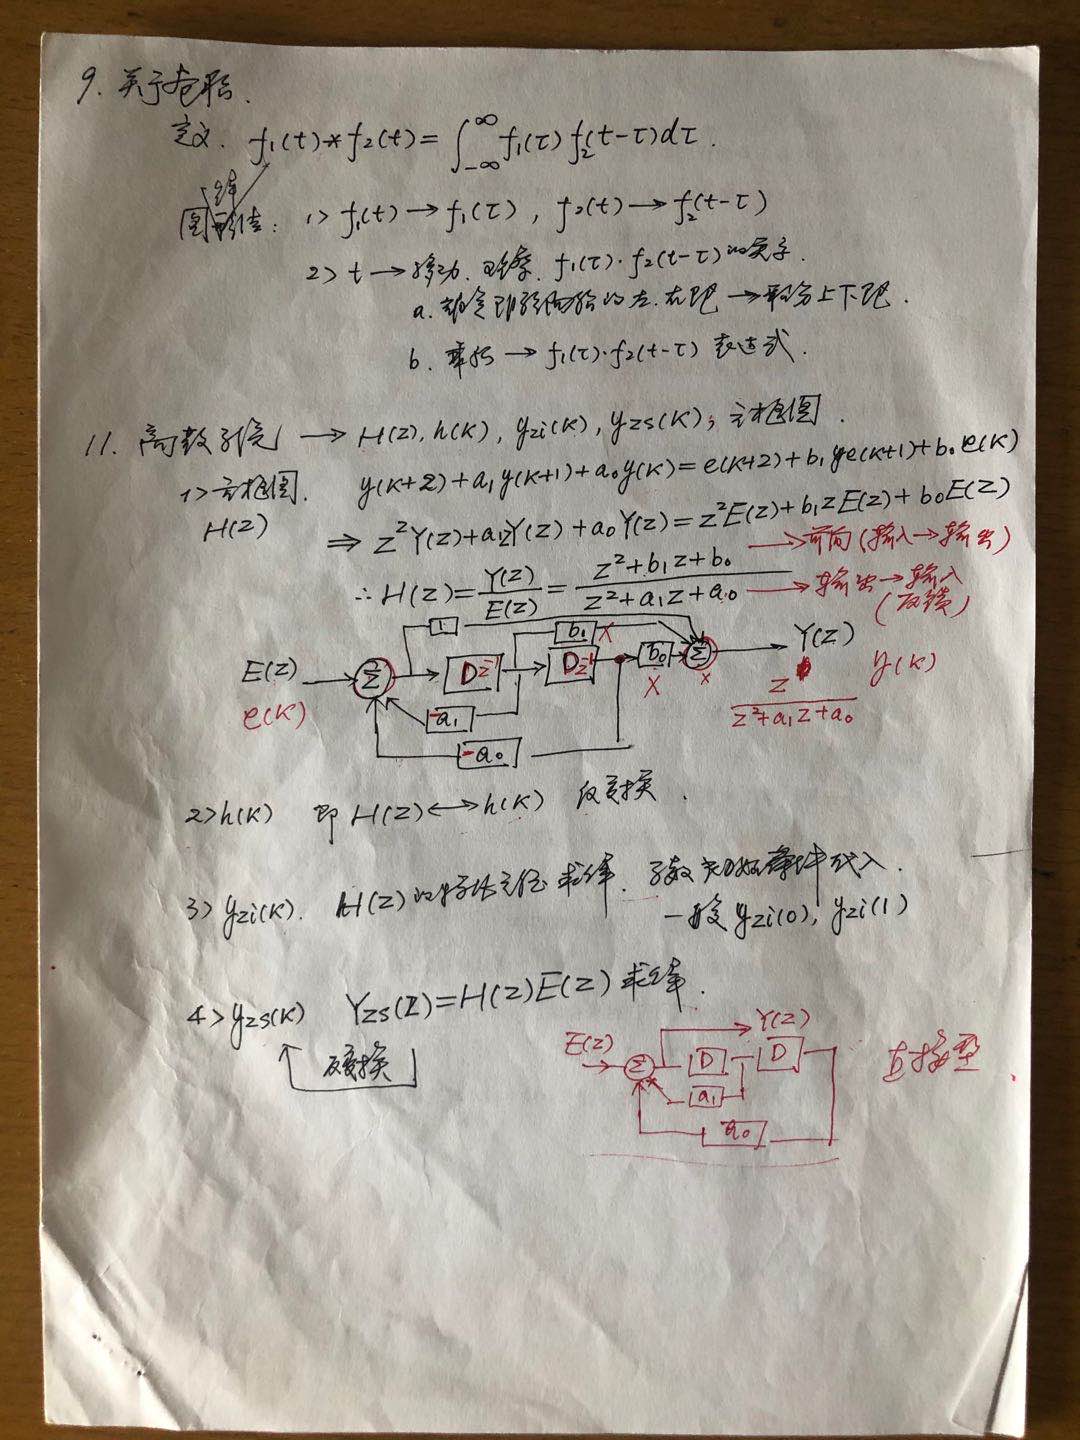 9. 关于卷积.
定义. f₁(t)*f₂(t)=∫_{-∞}^{∞}f₁(τ)f₂(t-τ)dτ.
图解法: 1> f₁(t)→f₁(τ), f₂(t)→f₂(t-τ)
2> t→移动. f₁(τ)·f₂(t-τ)的关系.
a. 确定 的左.右限→积分上下限.
b. 乘积→f₁(τ)·f₂(t-τ) 表达式.
11. 离散系统→H(z), h(k), yzi(k), yzs(k), 方框图.
1> 方框图. y(k+2)+a₁y(k+1)+a₀y(k)=e(k+2)+b₁e(k+1)+b₀e(k)
H(z) ⇒ z²Y(z)+a₁zY(z)+a₀Y(z)=z²E(z)+b₁zE(z)+b₀E(z)
∴H(z)=Y(z)/E(z)=(z²+b₁z+b₀)/(z²+a₁z+a₀)
→前向(输入→输出)
→输出→输入
(反馈)
1 b₁ X
E(z) Σ Dz⁻¹ Dz⁻¹ b₀ Σ Y(z)
e(k) X x y(k)
-a₁
z/(z²+a₁z+a₀)
-a₀
2> h(k) 即 H(z)↔h(k) 反变换.
3> yzi(k). H(z)的特征方程求解. 系数 初始条件代入.
一般 yzi(0), yzi(1)
4> yzs(k) Yzs(z)=H(z)E(z) 求解.
反变换
E(z) Y(z)
Σ D D 直接型
a₁
a₀